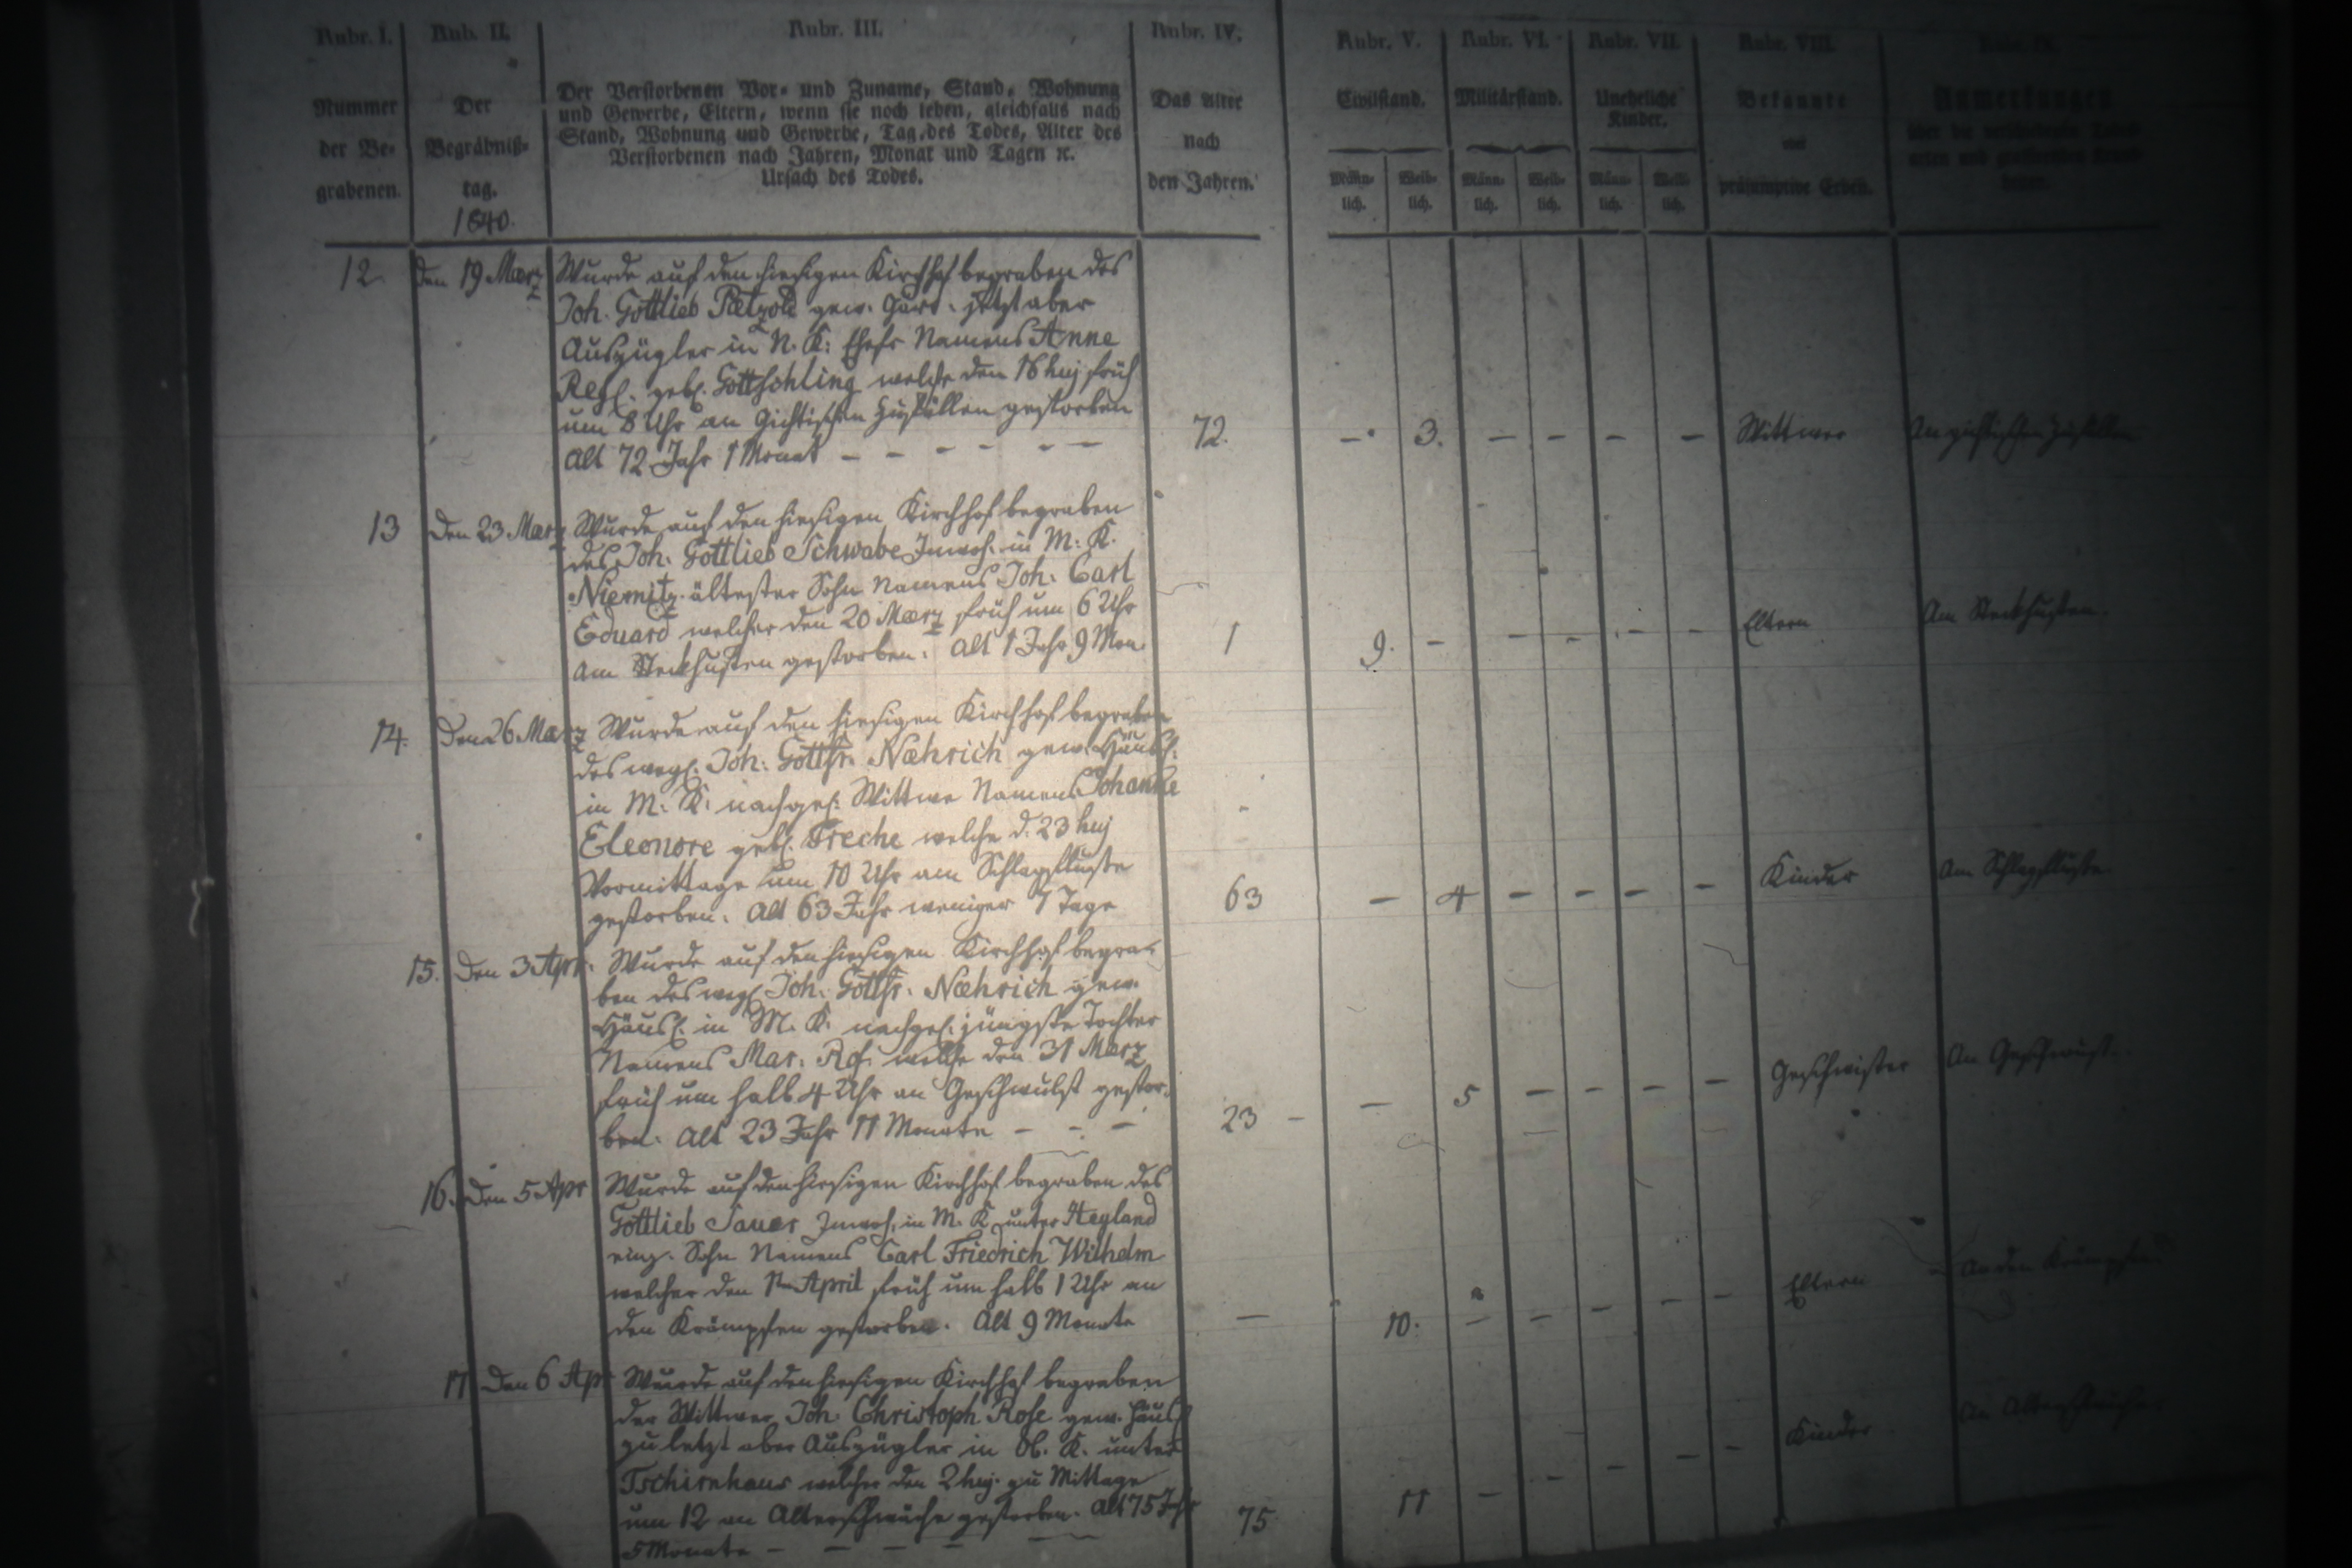 Rubr. I. Rub. II. Rubr. III. Rubr. IV. Rubr. V. Rubr. VI. Rubr. VII. Rubr. VIII. Rubr. IX.
Nummer
der Be-
grabenen.
Der
Begräbniß-
tag.
1840.
Der Verstorbenen Vor- und Zuname, Stand, Wohnung
und Gewerbe, Eltern, wenn sie noch leben, gleichfalls nach
Stand, Wohnung und Gewerbe, Tag des Todes, Alter des
Verstorbenen nach Jahren, Monat und Tagen ꝛc.
Ursach des Todes.
Das Alter
nach
den Jahren.
Civilstand.
Männ-
lich.
Weib-
lich.
Militärstand.
Männ-
lich.
Weib-
lich.
Uneheliche
Kinder.
Männ-
lich.
Weib-
lich.
Bekannte
oder
präsumptive Erben.
Anmerkungen
12. den 19 Maerz
Wurde auf den hiesigen Kirchhof begraben des
Joh. Gottlieb Paetzold gew. Gärt. jetzt aber
Auszügler in N. K: Ehefr Namens Anne
Rosl. gebl. Gottschling welche den 16 huj früh
um 8 Uhr an Gichtischen Zufällen gestorben
Alt 72 Jahr 1 Monat – – – – – –
72. – 3. – – – – Wittwer An gichtischen Zufällen
13 Den 23 Maerz
Wurde auf den hiesigen Kirchhof begraben
des Joh. Gottlieb Schwabe Inwoh. in M: K.
Niemitz ältester Sohn Namens Joh: Carl
Eduard welcher den 20 Maerz früh um 6 Uhr
am Steckhusten gestorben. Alt 1 Jahr 9 Mon.
1 9. – – – – – Eltern Am Steckhusten.
14. Den 26 Maerz
Wurde auf den hiesigen Kirchhof begraben
des wegl. Joh: Gottfr. Naehrich gew. Häusl.
in M: K: nachgel. Wittwe Namens Johanne
Eleonore gebl. Freche welche d. 23 huj
Vormittage um 10 Uhr am Schlagflusse
gestorben. Alt 63 Jahr weniger 7 Tage
63 – 4 – – – – Kinder Am Schlagflusse
15. Den 3 Apr.
Wurde auf den hiesigen Kirchhof begra-
ben des wegl Joh: Gottfr. Naehrich gew.
Häusl. in M. K. nachgel. jüngste Tochter
Namens Mar: Ros. welche den 31 Maerz
früh um halb 4 Uhr an Geschwulst gestor-
ben. Alt 23 Jahr 11 Monate – – –
23 – – 5 – – – – Geschwister An Geschwulst.
16. Den 5 Apr
Wurde auf den hiesigen Kirchhof begraben des
Gottlieb Sauer Inwoh. in M. K unter Hegland
einz. Sohn Namens Carl Friedrich Wilhelm
welcher den 1ten April früh um halb 1 Uhr an
den Krämpfen gestorben. Alt 9 Monate
– 10. – – – – – Eltern An den Krämpfen
17 Den 6 Apr
Wurde auf den hiesigen Kirchhof begraben
der Wittwer Joh. Christoph Rose gew. Häusl
zu letzt aber Auszügler in Ob. K. unter
Tschirnhaus welcher den 2 huj. zu Mittage
um 12 an Altersschwäche gestorben. Alt 75 Jahr
5 Monate – – – – –
75 11 – – – – – Kinder An Altersschwäche